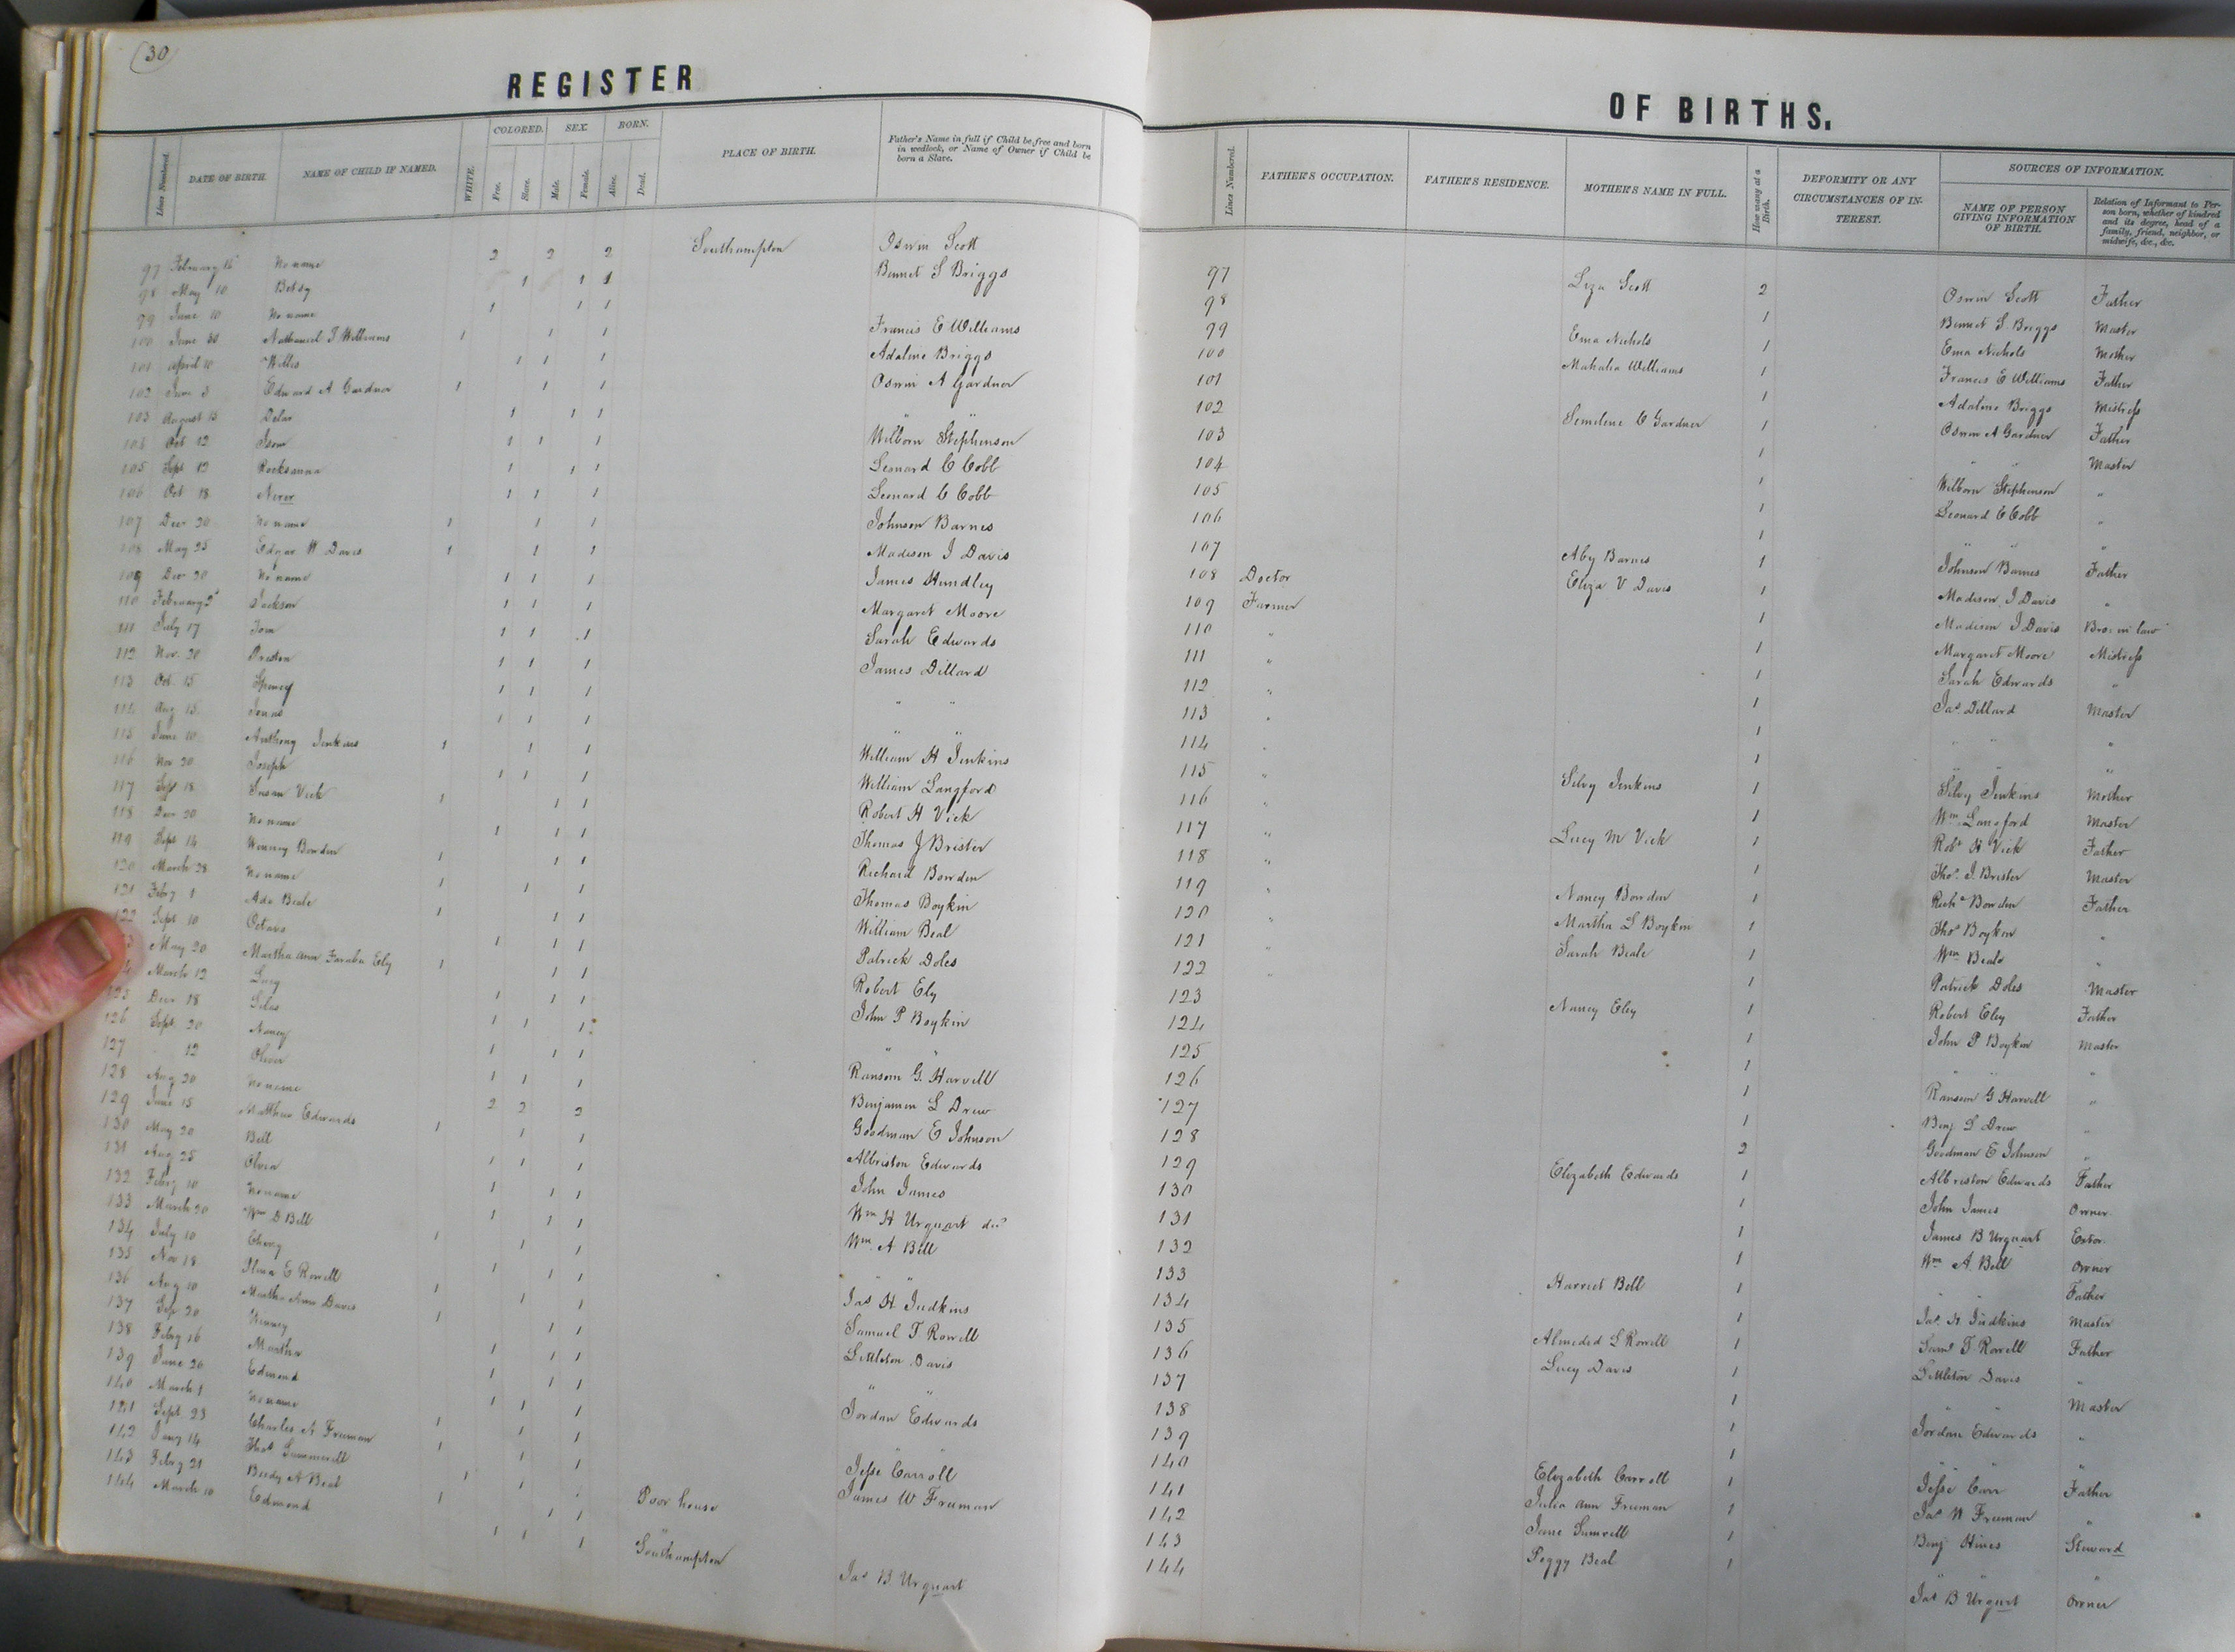 30
REGISTER
OF BIRTHS.
Lines Numbered.
DATE OF BIRTH.
NAME OF CHILD IF NAMED.
WHITE.
COLORED.
Free.
Slave.
SEX.
Male.
Female.
BORN.
Alive.
Dead.
PLACE OF BIRTH.
Father's Name in full if Child be free and born
in wedlock, or Name of Owner if Child be
born a Slave.
Lines Numbered.
FATHER'S OCCUPATION.
FATHER'S RESIDENCE.
MOTHER'S NAME IN FULL.
How many at a Birth.
DEFORMITY OR ANY
CIRCUMSTANCES OF IN-
TEREST.
SOURCES OF INFORMATION.
NAME OF PERSON
GIVING INFORMATION
OF BIRTH.
Relation of Informant to Per-
son born, whether of kindred
and its degree, head of a
family, friend, neighbor, or
midwife, &c., &c.
97 February No name 2 2 2 Southampton Oswin Scott
98 May 10 Betsy 1 1 1 Bennet S Briggs
99 June 10 No name 1 1 1
100 June 30 Nathaniel T Williams 1 1 1 Francis E Williams
101 April 10 Willis 1 1 1 Adaline Briggs
102 June Edward A Gardner 1 1 1 Oswin A Gardner
103 August 15 1 1 1 " "
104 Oct 12 Isom 1 1 1 Wilborn Stephenson
105 Sept 12 Rocksanna 1 1 1 Leonard C Cobb
106 Oct 18 1 1 1 Leonard C Cobb
107 Decr 20 No name 1 1 1 Johnson Barnes
108 May 25 Edgar W Davis 1 1 1 Madison J Davis
109 Decr 20 No name 1 1 1 James Hundley
110 February Jackson 1 1 1 Margaret Moore
111 July 17 Tom 1 1 1 Sarah Edwards
112 Nov. 20 Preston 1 1 1 James Dillard
113 Oct. 15 1 1 1 " "
114 Aug 15 Jonas 1 1 1 " "
115 June 10 Anthony Jenkins 1 1 1 William H Jenkins
116 Nov 20 Joseph 1 1 1 William Langford
117 Sept 18 Susan Vick 1 1 1 Robert H Vick
118 Decr 20 No name 1 1 1 Thomas J Brister
119 Sept 14 Bowden 1 1 1 Richard Bowden
120 March 28 No name 1 1 1 Thomas Boykin
121 Feby 1 Ada Beale 1 1 1 William Beal
122 Sept 10 1 1 1 Patrick Doles
May 20 Martha Ann Ely 1 1 1 Robert Ely
March 12 Lucy 1 1 1 John P Boykin
125 Decr 18 Silas 1 1 1 " "
126 Sept. 20 Nancy 1 1 1 Ransom G. Harvell
127 " 12 Oliver 1 1 1 Benjamin L Drew
128 Aug 20 No name 2 2 2 Goodman E Johnson
129 June 15 Matthew Edwards 1 1 1 Albriston Edwards
130 May 20 Bell 1 1 1 John James
131 Aug 25 1 1 1 Wm H Urquart
132 Feby 10 No name 1 1 1 Wm A Bill
133 March 20 Wm D Bell 1 1 1 " "
134 July 10 1 1 1 Jas H Judkins
135 Nov 18 E Rowell 1 1 1 Samuel T Rowell
136 Aug 10 Martha Ann Davis 1 1 1 Littleton Davis
137 Sep 20 1 1 1 " "
138 Feby 16 Martha 1 1 1 Jordan Edwards
139 June 26 Edmond 1 1 1 " "
140 March 1 No name 1 1 1 Jesse Carroll
141 Sept 23 Charles A Freeman 1 1 1 James W Freeman
142 Jany 14 Thos Summerell Poor house
143 Feby 21 A Beal " "
144 March 10 Edmond 1 1 1 Southampton Jas B. Urquart
97 Liza Scott 2 Oswin Scott Father
98 1 Bennet S. Briggs Master
99 Ema Nichols 1 Ema Nichols Mother
100 Mahalia Williams 1 Francis E Williams Father
101 1 Adaline Briggs Mistress
102 Gardner 1 Oswin A Gardner Father
103 1 " " Master
104 1 Wilborn Stephenson "
105 1 Leonard C Cobb "
106 1 " " "
107 Aby Barnes 1 Johnson Barnes Father
108 Doctor Eliza V Davis 1 Madison J Davis "
109 Farmer 1 Madison J Davis Bro: in law
110 " 1 Margaret Moore Mistress
111 " 1 Sarah Edwards "
112 " 1 Jas Dillard Master
113 " 1 " " "
114 " 1 " " "
115 " Silvy Jenkins 1 Silvy Jenkins Mother
116 " 1 Wm Langford Master
117 " Lucy M Vick 1 Robt H Vick Father
118 " 1 Thos. J. Brister Master
119 " Nancy Bowden 1 Richd Bowden Father
120 " Martha L Boykin 1 Thos Boykin "
121 " Sarah Beale 1 Wm Beale "
122 " 1 Patrick Doles Master
123 Nancy Eley 1 Robert Eley Father
124 1 John P Boykin Master
125 1 " " "
126 1 Ransom G Harvell "
127 1 Benj L Drew "
128 2 Goodman E Johnson "
129 Elizabeth Edwards 1 Albriston Edwards Father
130 1 John James Owner
131 1 James B Urquart Extor.
132 1 Wm A. Bell Owner
133 Harriet Bell 1 " " Father
134 1 Jas. H. Judkins Master
135 Almeded L Rowell 1 Saml T. Rowell Father
136 Lucy Davis 1 Littleton Davis "
137 1 " " Master
138 1 Jordan Edwards "
139 1 " " "
140 Elizabeth Carroll 1 Jesse Carr Father
141 Julia Ann Freeman 1 Jas W Freeman "
142 Jane Sumrell 1 Benj Hines Steward
143 Peggy Beal 1 " " "
144 Jas B Urqurt Owner